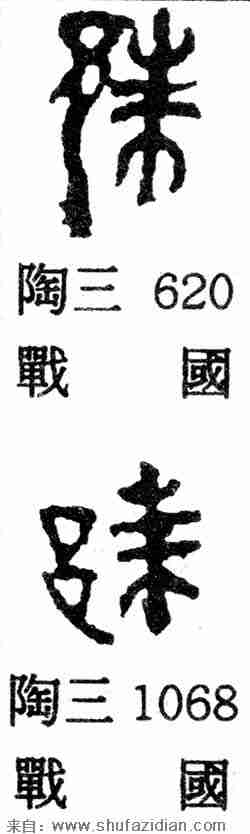 陶三 620
戰 國
陶三 1068
戰 國
来自: www.shufazidian.com